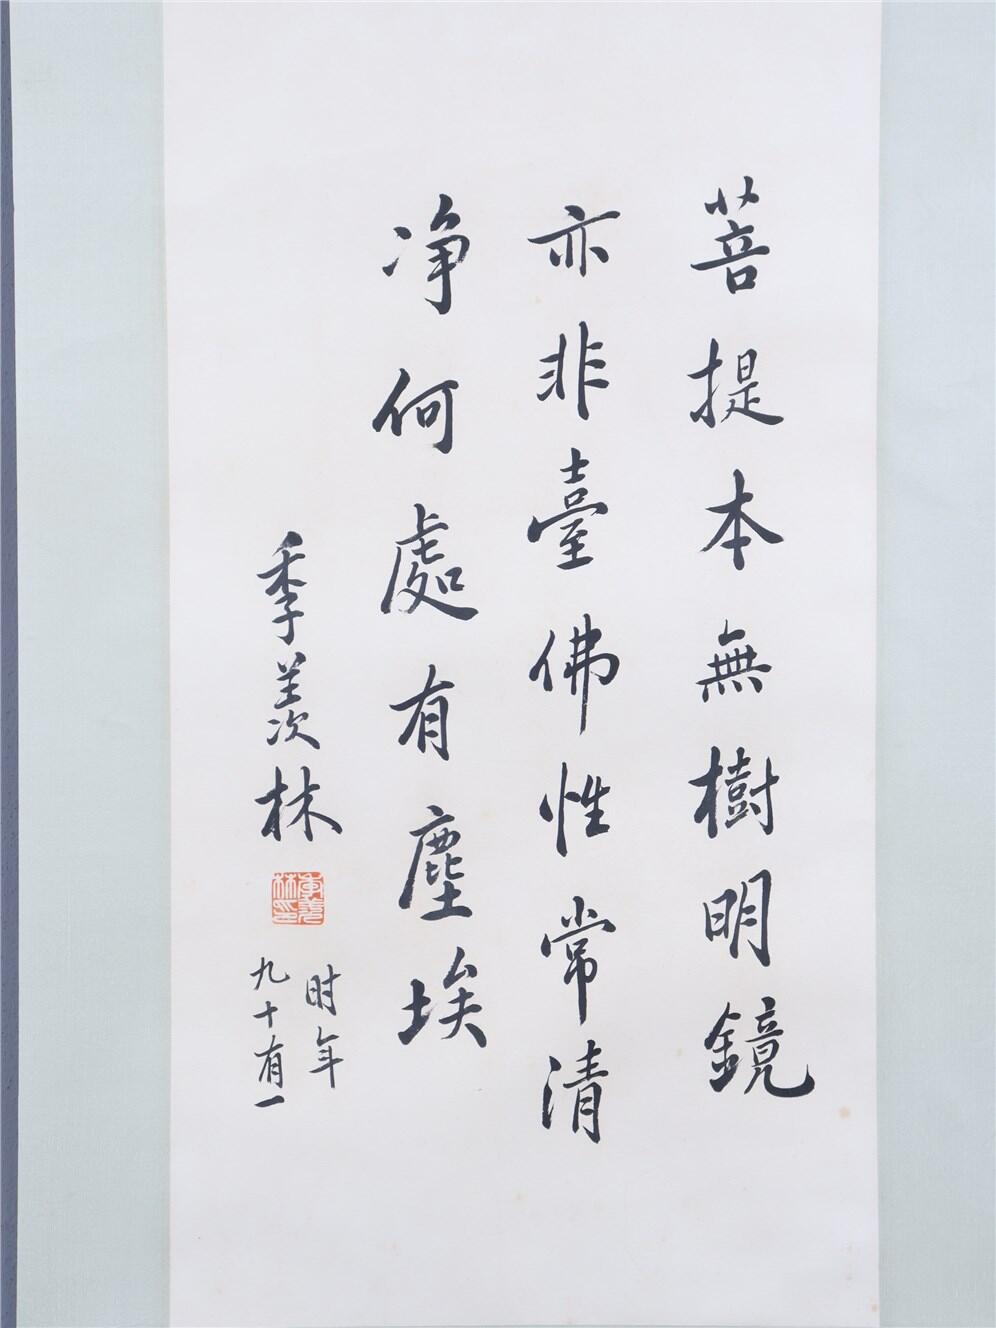 菩提本無樹明鏡
亦非臺佛性常清
净何處有塵埃
季羨林
时年
九十有一